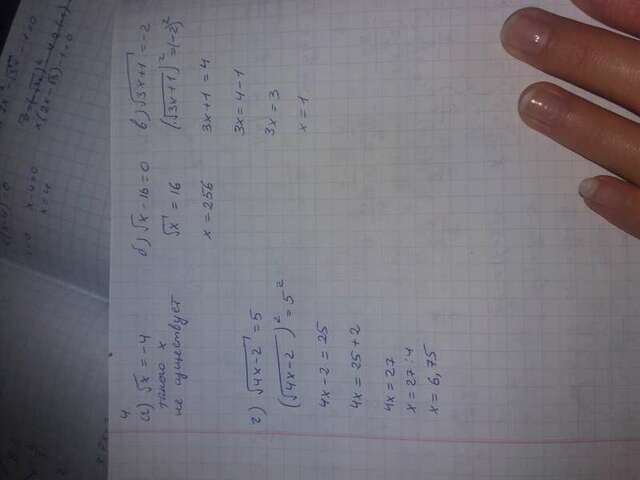 x-4=0
x=4
4
а) √x = -4
такого x
не существует
б) √x - 16 = 0
√x = 16
x = 256
в) √3x+1 = -2
(√3x+1)² = (-2)²
3x+1 = 4
3x = 4-1
3x = 3
x = 1
г) √4x-2 = 5
(√4x-2)² = 5²
4x-2 = 25
4x = 25+2
4x = 27
x = 27:4
x = 6,75